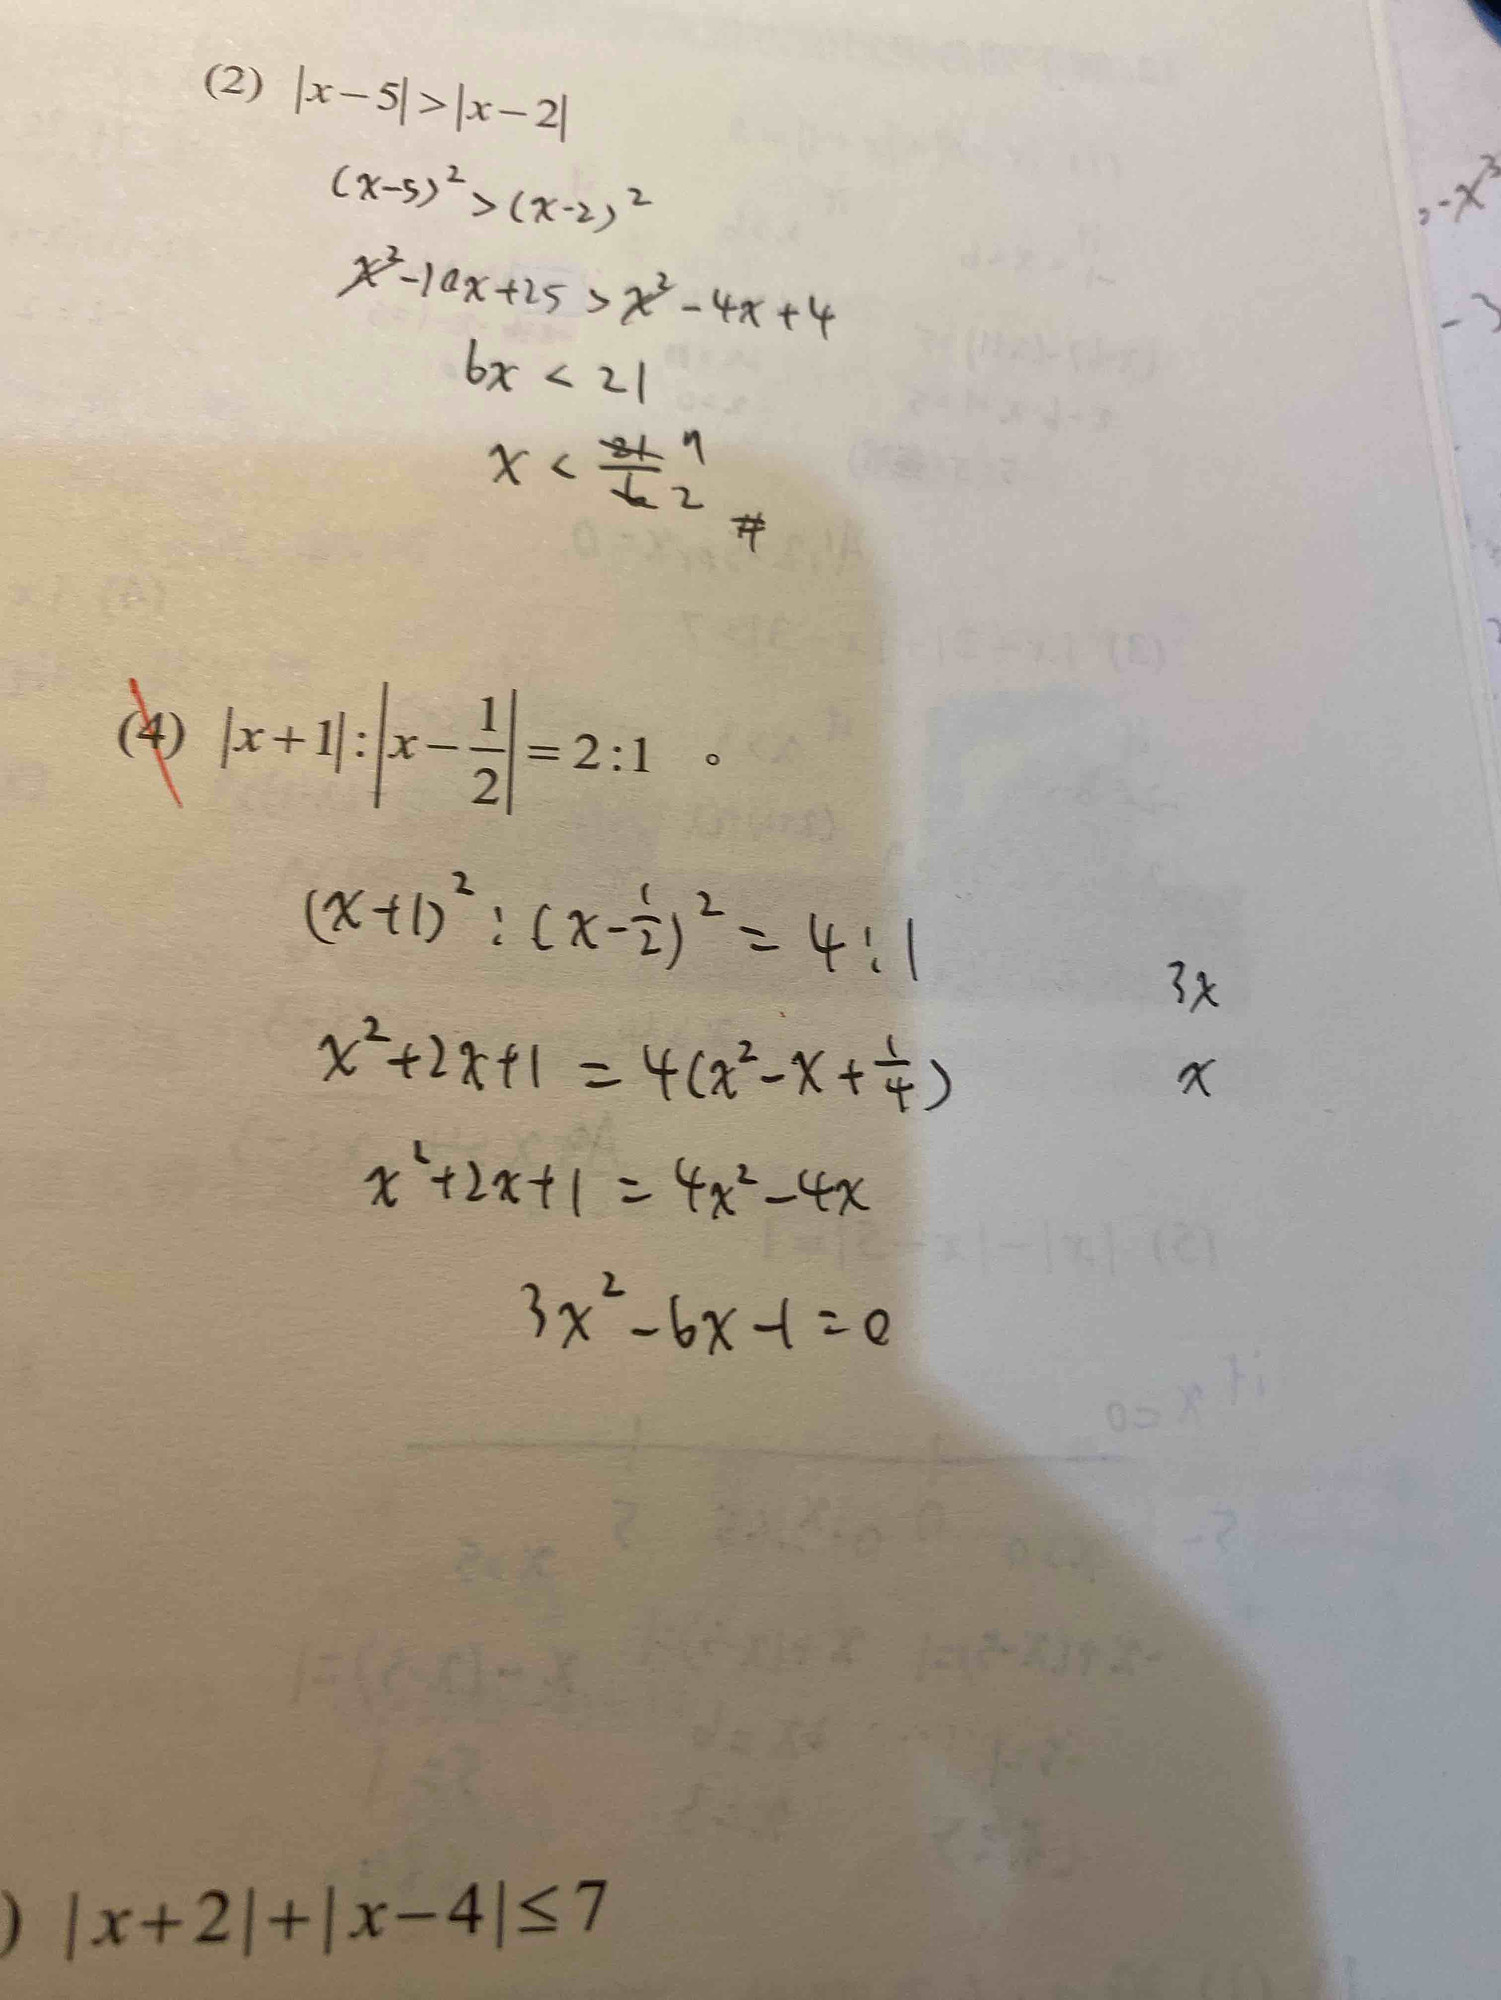 (2) |x-5|>|x-2|
(x-5)²>(x-2)²
x²-10x+25>x²-4x+4
6x<21
x<21/6 7/2 #
(4) |x+1|:|x-1/2|=2:1 。
(x+1)²:(x-1/2)²=4:1
3x
x²+2x+1=4(x²-x+1/4)
x
x²+2x+1=4x²-4x
3x²-6x-1=0
) |x+2|+|x-4|≤7